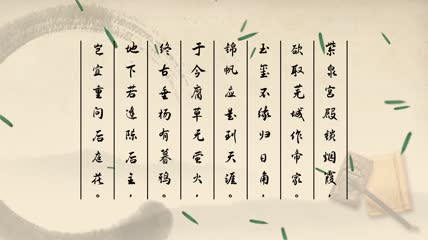 紫泉宫殿锁烟霞，
欲取芜城作帝家。
玉玺不缘归日角，
锦帆应是到天涯。
于今腐草无萤火，
终古垂杨有暮鸦。
地下若逢陈后主，
岂宜重问后庭花。